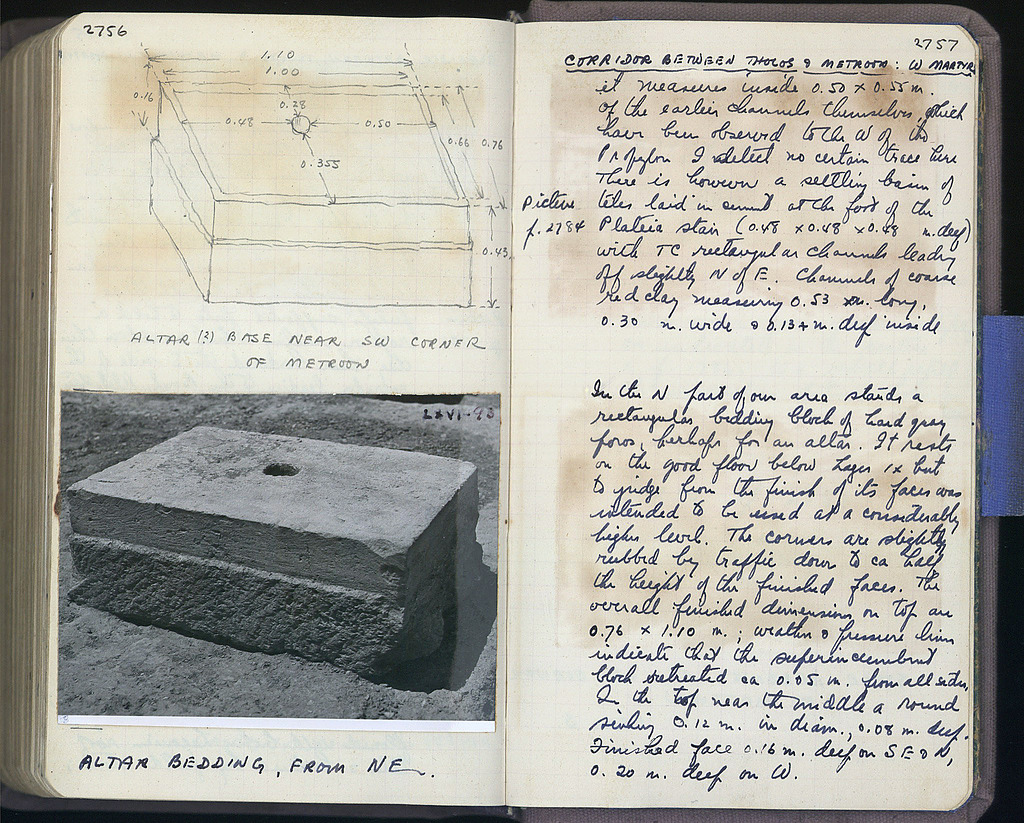 2756
1.10
1.00
0.16
0.28
0.48
0.50
0.355
0.66 0.76
0.43
ALTAR (?) BASE NEAR SW CORNER
OF METROON
LXVI-93
ALTAR BEDDING, FROM NE.
2757
CORRIDOR BETWEEN THOLOS & METROON: W MARTYR
it measures inside 0.50 x 0.55 m.
Of the earlier channels themselves, which
have been observed to the W of the
Propylon I detect no certain trace here
There is however a settling basin of
tiles laid in cement at the foot of the
Picture
p. 2784
Plateia stair (0.48 x 0.48 x 0.48 m. deep)
with TC rectangular channels leading
off slightly N of E. Channels of coarse
red clay measuring 0.53 m. long,
0.30 m. wide & 0.13+ m. deep inside
In the N part of our area stands a
rectangular bedding block of hard gray
poros, perhaps for an altar. It rests
on the good floor below layer IX but
to judge from the finish of its faces was
intended to be used at a considerably
higher level. The corners are slightly
rubbed by traffic down to ca half
the height of the finished faces. The
overall finished dimensions on top are
0.76 x 1.10 m.; weather & pressure lines
indicate that the superincumbent
block retreated ca 0.05 m. from all sides.
In the top near the middle a round
sinking 0.12 m. in diam., 0.08 m. deep.
Finished face 0.16 m. deep on S E & N,
0.20 m. deep on W.